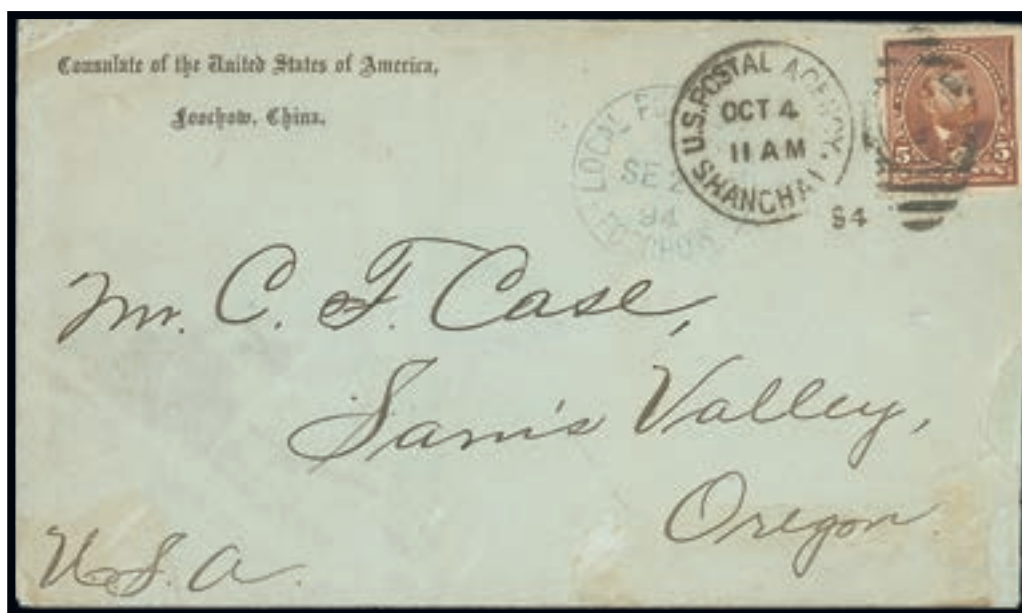 Consulate of the United States of America,
Foochow, China.
LOCAL
SE
94
U.S. POSTAL AGENCY.
OCT 4
11 AM
SHANGHAI
94
5 5
Mr. C. F. Case,
Sam's Valley,
Oregon
U.S.A.